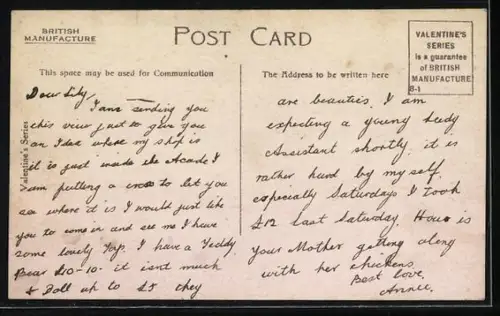 BRITISH
MANUFACTURE
POST CARD
VALENTINE'S
SERIES
is a guarantee
of BRITISH
MANUFACTURE
B-1
This space may be used for Communication
The Address to be written here
Valentine's Series
Dear Lily,
I am sending you
this view just to give you
an Idea where my shop is
it is just inside the Acade I
am putting a cross to let you
see where it is I would just like
you to come in and see me I have
some lovely Toys I have a Teddy
Bear £10-10. it isnt much
& Doll up to £5 they
are beauties. I am
expecting a young lady
Assistant shortly. it is
rather hard by my self.
especially Saturdays I took
£12 last Saturday. How is
your Mother getting along
with her chickens.
Best love.
Annie.